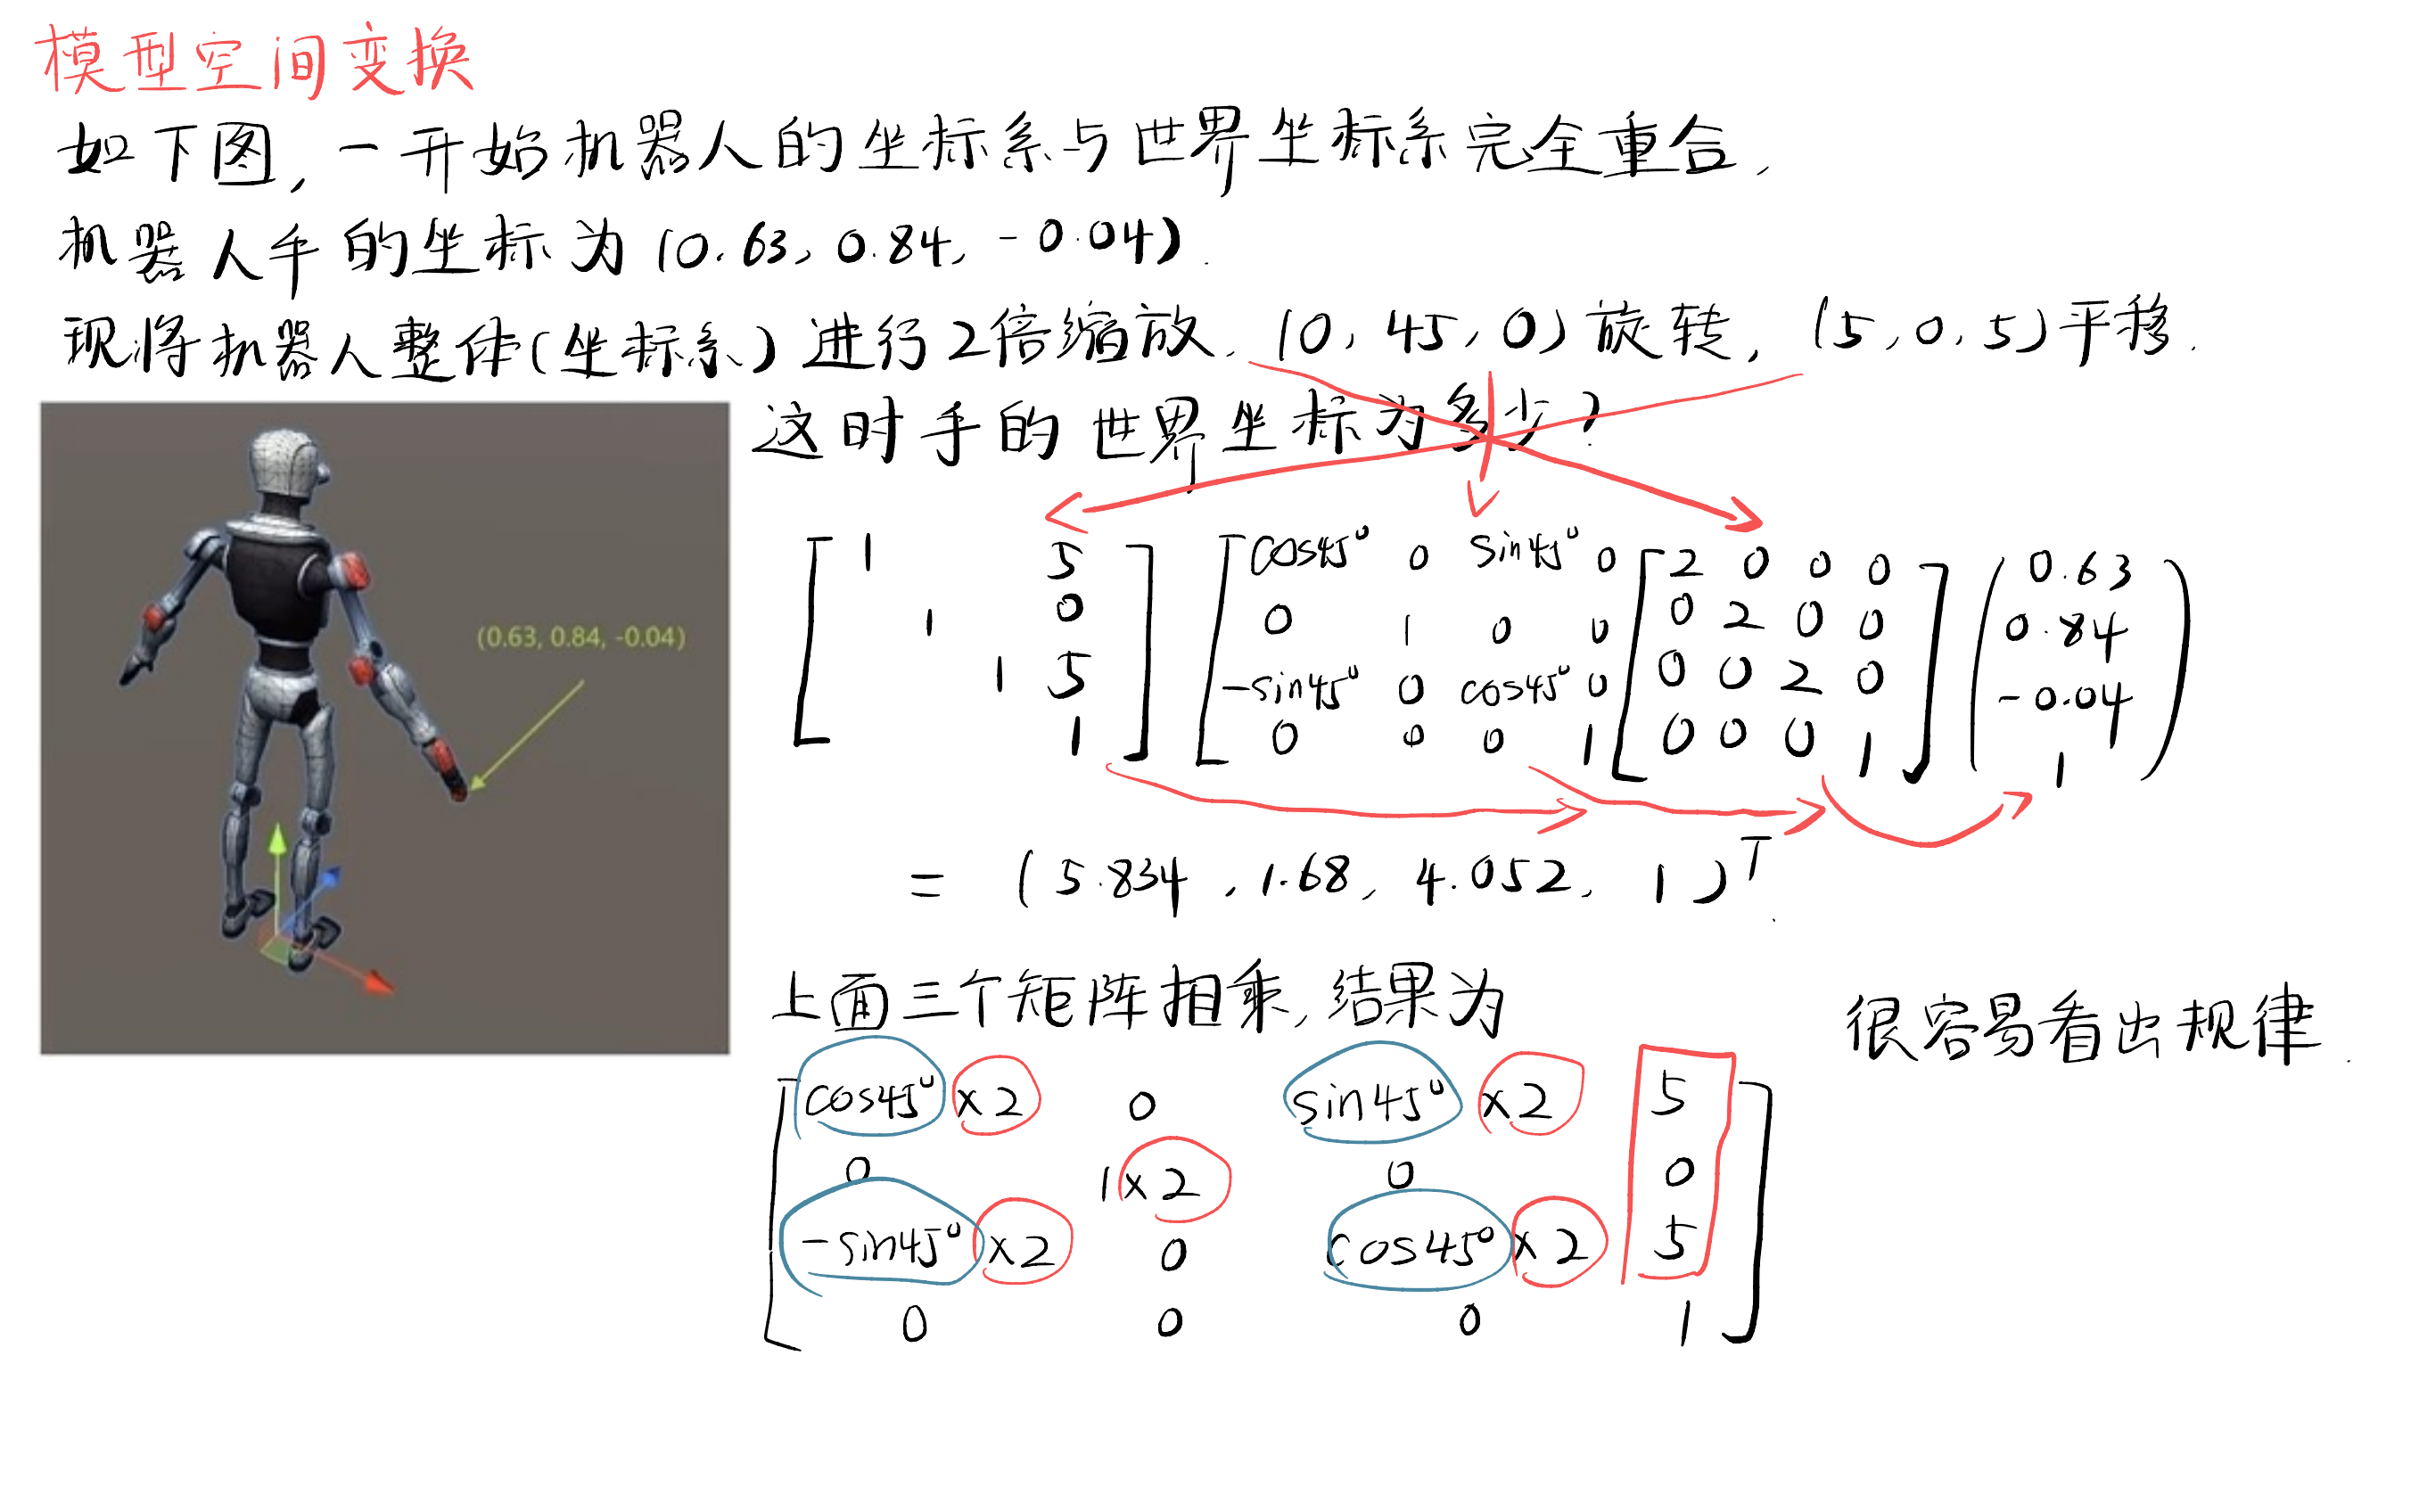 模型空间变换
如下图,一开始机器人的坐标系与世界坐标系完全重合,
机器人手的坐标为(0.63, 0.84, -0.04).
现将机器人整体(坐标系)进行2倍缩放, (0, 45, 0)旋转, (5, 0, 5)平移.
这时手的世界坐标为多少?
(0.63, 0.84, -0.04)
1 5 cos45° 0 sin45° 0 2 0 0 0 0.63
1 0 0 1 0 0 0 2 0 0 0.84
1 5 -sin45° 0 cos45° 0 0 0 2 0 -0.04
1 0 0 0 1 0 0 0 1 1
= (5.834, 1.68, 4.052, 1)T.
上面三个矩阵相乘,结果为
很容易看出规律.
cos45° ×2 0 sin45° ×2 5
0 1×2 0 0
-sin45° ×2 0 cos45° ×2 5
0 0 0 1